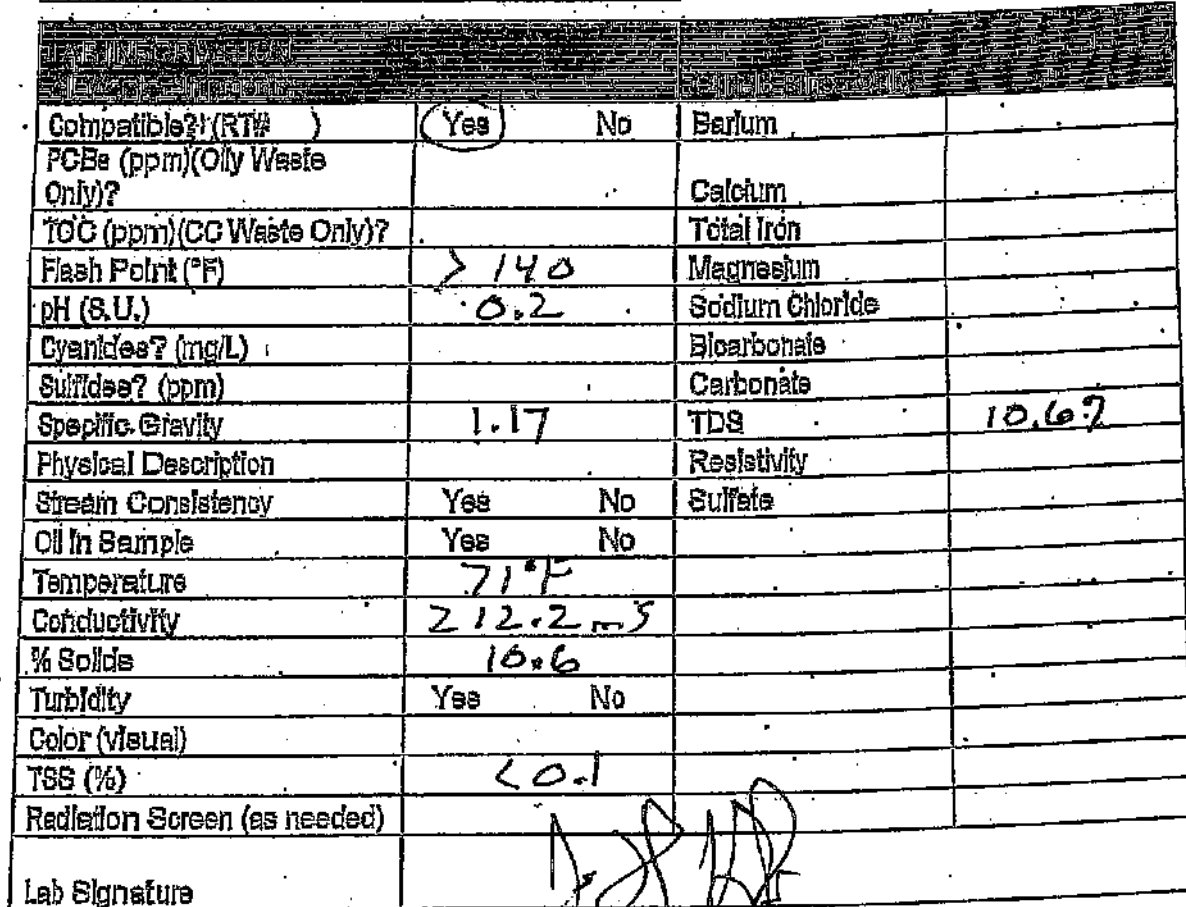 LAB INFORMATION
Compatible? (RT# ) Yes No Barium
PCBs (ppm)(Oily Waste
Only)? Calcium
TOC (ppm)(CC Waste Only)? Total Iron
Flash Point (°F) > 140 Magnesium
pH (S.U.) 0.2 Sodium Chloride
Cyanides? (mg/L) Bicarbonate
Sulfides? (ppm) Carbonate
Specific Gravity 1.17 TDS
Physical Description Resistivity
Stream Consistency Yes No Sulfate
Oil In Sample Yes No
Temperature 71°F
Conductivity 212.2 mS
% Solids 10.6
Turbidity Yes No
Color (visual)
TSS (%) <0.1
Radiation Screen (as needed)
Lab Signature